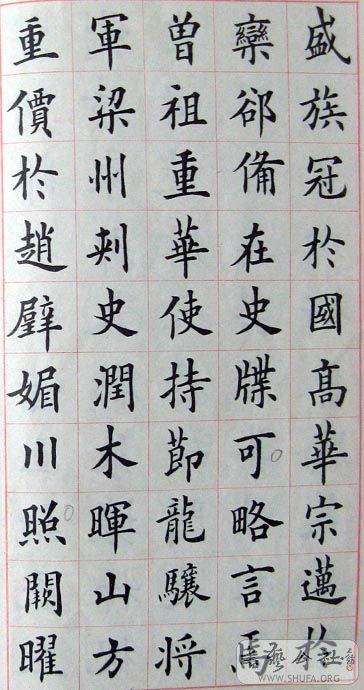 盛族冠於國高華宗邁於
欒郤備在史牒可略言焉
曽祖重華使持節龍驤将
軍梁州刾史潤木暉山方
重價於趙璧媚川照闕曜
WWW.SHUFA.ORG